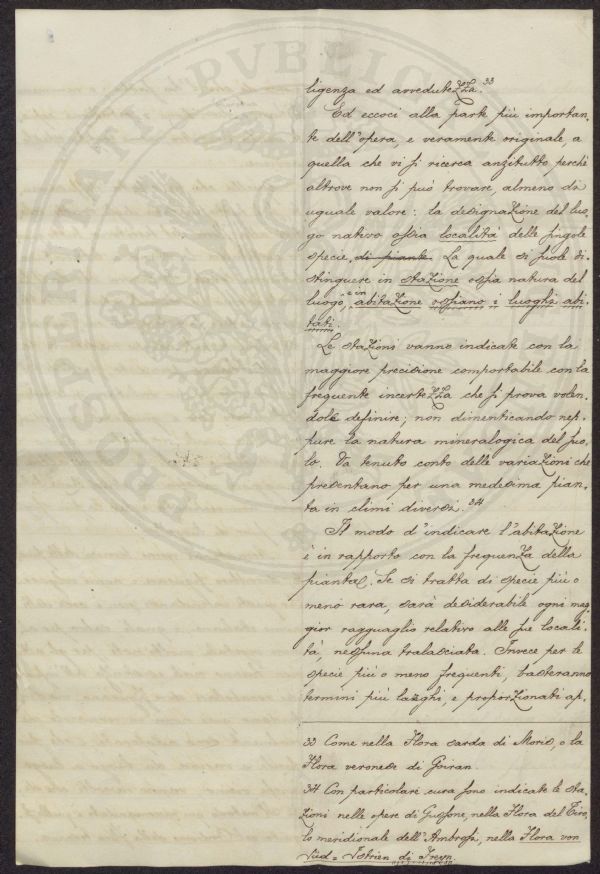 ligenza ed avvedutezza.³³
Ed eccoci alla parte più importan-
te dell'opera, e veramente originale, a
quella che vi si ricerca anzitutto, perchè
altrove non si può trovare, almeno di
uguale valore: la designazione del luo-
go nativo ossia località delle singole
specie, di piante. La quale si suole di-
stinguere in stazione ossia natura del
luogo, e in abitazione ossiano i luoghi abi-
tati.
Le stazioni vanno indicate con la
maggiore precisione comportabile con la
frequente incertezza che si prova volen-
dole definire; non dimenticando nep-
pure la natura mineralogica del suo-
lo. Va tenuto conto delle variazioni che
presentano per una medesima pian-
ta in climi diversi.³⁴
Il modo d'indicare l'abitazione
è in rapporto con la frequenza della
pianta. Se si tratta di specie più o
meno rara, sarà desiderabile ogni mag-
gior ragguaglio relativo alle sue locali-
tà, nessuna tralasciata. Invece per le
specie più o meno frequenti, basteranno
termini più larghi, e proporzionati ap-
33 Come nella Flora sarda di Moris, o la
Flora veronese di Goiran.
34 Con particolare cura sono indicate le sta-
zioni nelle opere di Gussone, nella Flora del Tiro-
lo meridionale dell'Ambrosi, nella Flora von
Süd-Istrien di Freyn.
PVBLIC